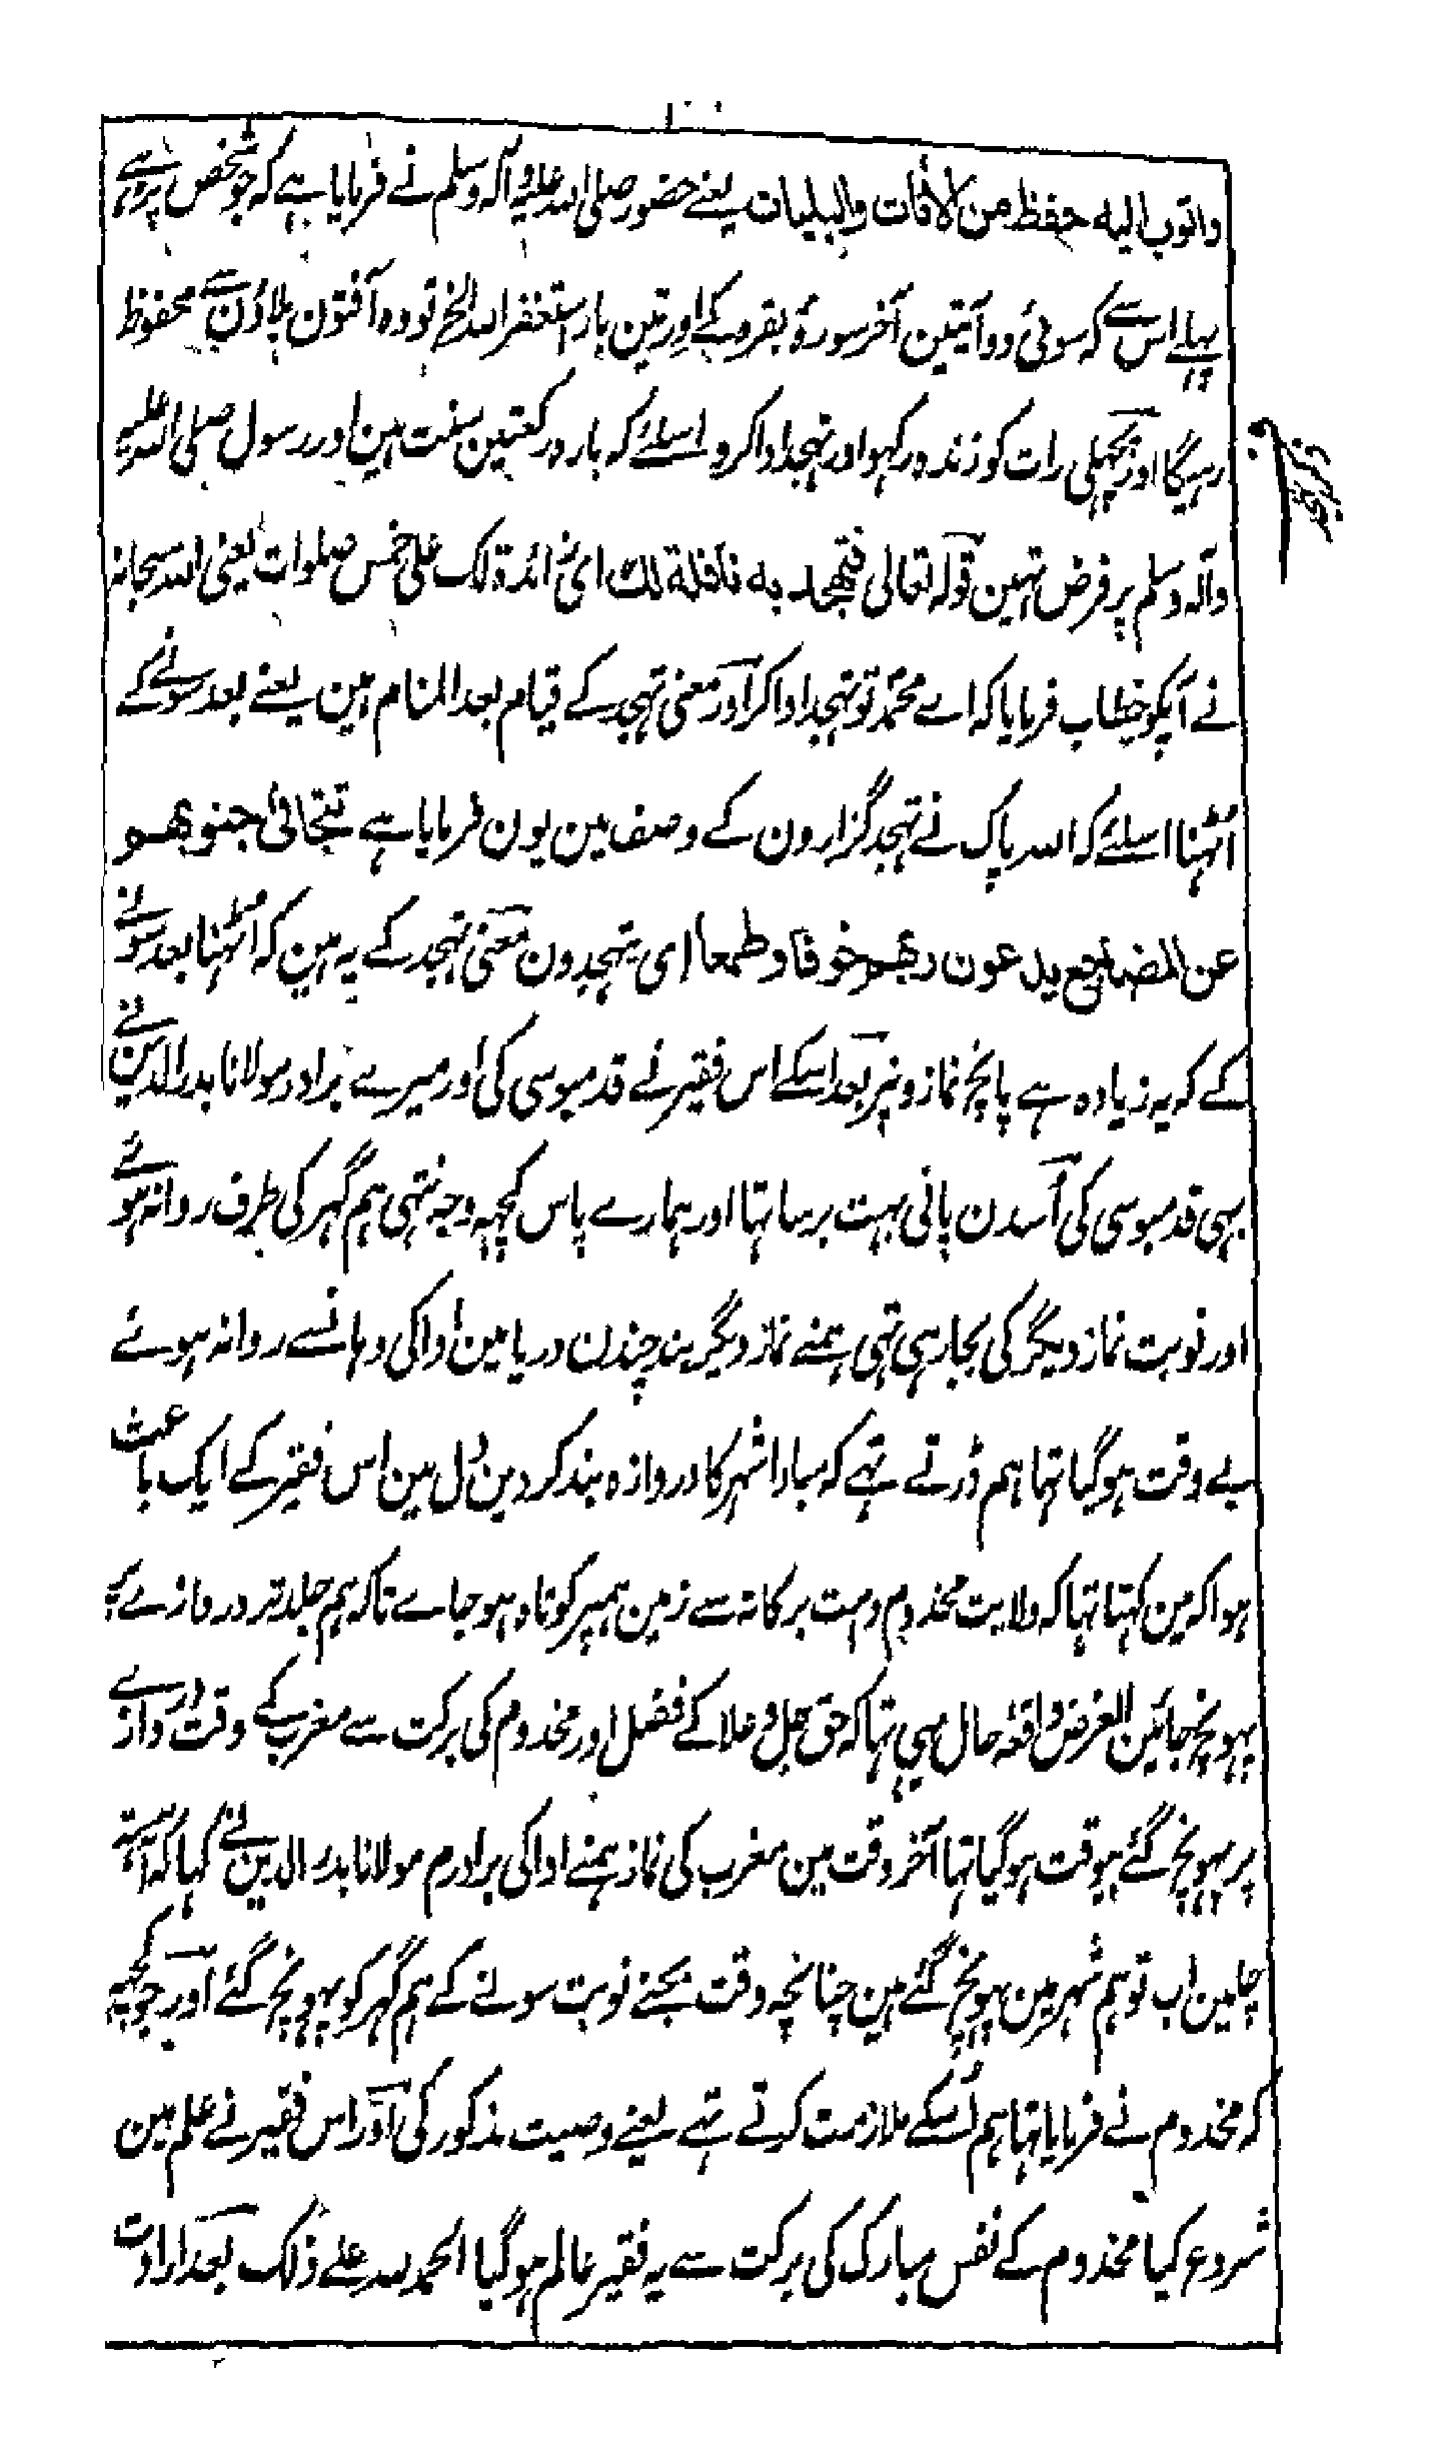 ۱۰۰
واتوب الیه حفظ من لافات والبلیات یعنے حضور صلی اللہ علیہ وآلہ وسلم نے فرمایا ہے کہ جو شخص پڑہے
پہلے اس سے کہ سوئی دو آیتین آخر سورۂ بقرہ کے اور تین بار استغفر اللہ الخ تو وہ آفتون بلاؤن سے محفوظ
رہیگا اور پچھلی رات کو زندہ رکہو اور تہجد ادا کرو اسلئے کہ بارہ رکعتین سنت ہین اور رسول صلی اللہ علیہ
وآلہ وسلم پر فرض تہین قولہ تعالی فتھجد به نافلة لك ای زائدة لک علی خمس صلوات یعنی اللہ سبحانہ
نے آپکو خطاب فرمایا کہ اے محمد تو تہجد ادا کر اور معنی تہجد کے قیام بعد المنام ہین یعنے بعد سونے کے
اٹہنا اسلئے کہ اللہ پاک نے تہجد گزارون کے وصف مین یون فرمایا ہے تتجافیٰ جنوبھم
عن المضاجع یدعون ربھم خوفا وطمعا ای یتہجدون معنی تہجد کے یہ ہین کہ اٹہنا بعد سونے
کے کہ یہ زیادہ ہے پانچ نمازونپر بعد اسکے اس فقیر نے قدمبوسی کی اور میرے برادر مولانا بدر الدین نے
بہی قدمبوسی کی اسدن پانی بہت برسا تہا اور ہمارے پاس کچہہ وجہ نتہی ہم گہر کی طرف روانہ ہوئے
اور نوبت نماز دیگر کی بجا رہی تہی ہمنے نماز دیگر بند چندن دریا مین ادا کی وہانسے روانہ ہوئے
بے وقت ہوگیا تہا ہم ڈرتے تہے کہ مبادا شہر کا دروازہ بند کر دین دل مین اس فقیر کے ایک باعث
ہوا کہ مین کہتا تہا کہ ولایت مخدوم دامت برکاتہ سے زمین ہمپر کوتاہ ہو جاے تاکہ ہم جلد تر دروازے پر
پہونچ جائین الغرض واقعۂ حال یہی تہا کہ حق جل وعلا کے فضل اور مخدوم کی برکت سے مغرب کے وقت دروازے
پر پہونچ گئے بیوقت ہوگیا تہا آخر وقت مین مغرب کی نماز ہمنے ادا کی برادرم مولانا بدر الدین نے کہا کہ آہستہ
چلین اب تو ہم شہر مین پہونچ گئے ہین چنانچہ وقت بجنے نوبت سونے کے ہم گہر کو پہونچ گئے اور جو کچہہ
کہ مخدوم نے فرمایا تہا ہم اسکے ملازمت کرتے تہے یعنے وصیت مذکور کی اور اس فقیر نے علم مین
شروع کیا مخدوم کے نفس مبارک کی برکت سے یہ فقیر عالم ہوگیا الحمد للہ علے ذلک بعد ارادت